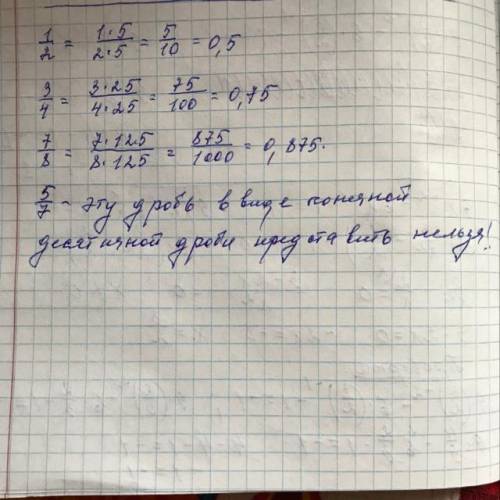 1/2 = 1·5/2·5 = 5/10 = 0,5
3/4 = 3·25/4·25 = 75/100 = 0,75
7/8 = 7·125/8·125 = 875/1000 = 0,875.
5/7 - эту дробь в виде конечной
десятичной дроби представить нельзя!